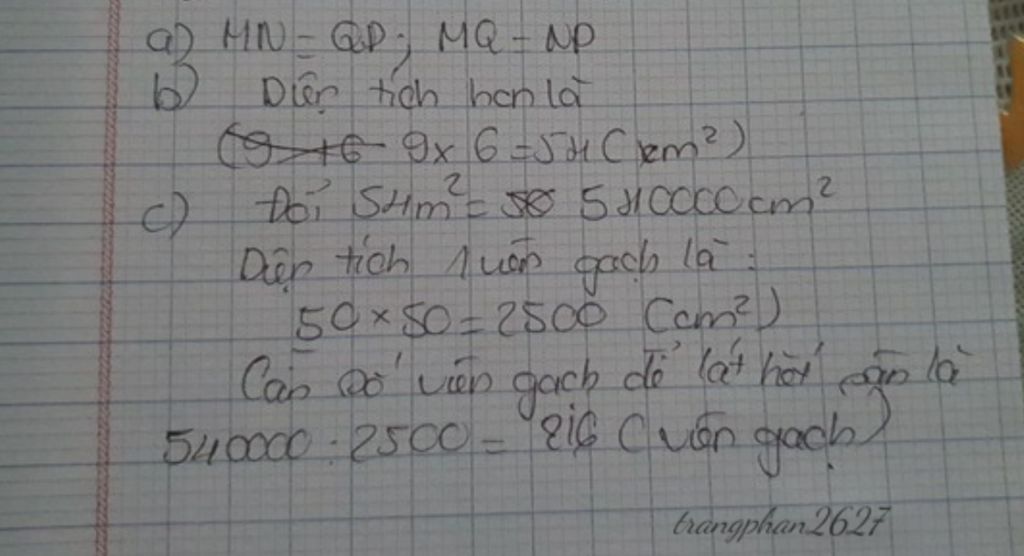 a) MN = QP; MQ = NP
b) Diện tích hcn là
9 x 6 = 54 (cm²)
c) Đổi 54m² = 540000 cm²
Diện tích 1 viên gạch là:
50 x 50 = 2500 (cm²)
Cần số viên gạch để lát hết căn là
540000 : 2500 = 216 (viên gạch)
trangphan2627